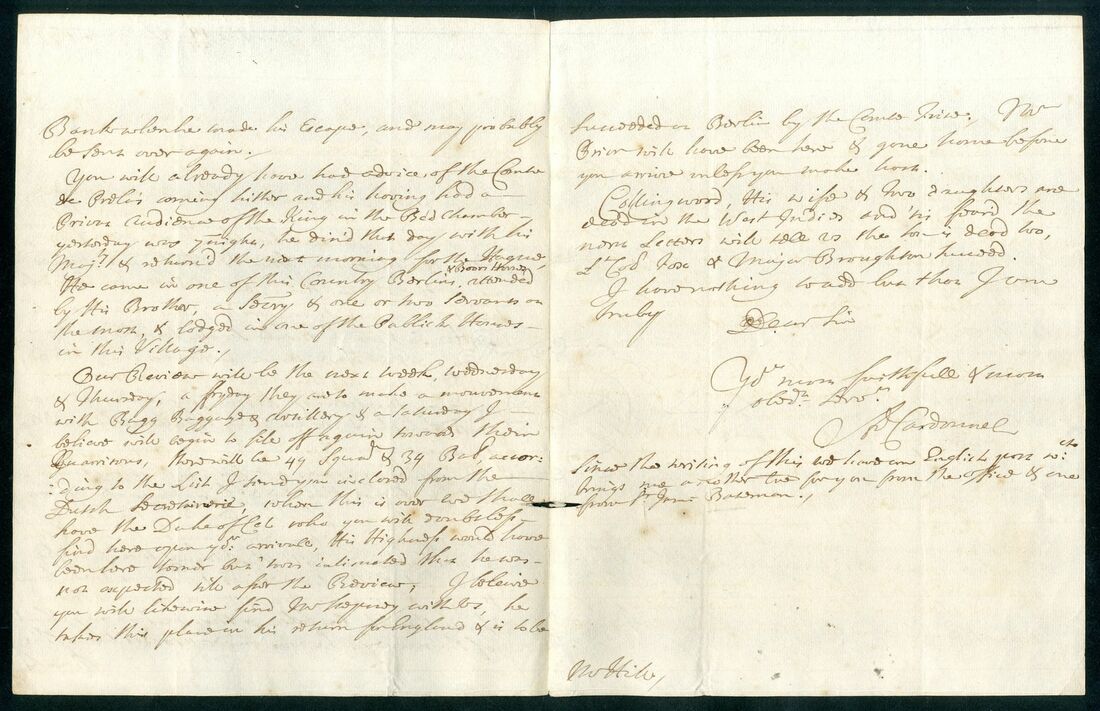 Bank when he made his Escape, and may probably
be sent over again.
You will already have had advice of the Comte
de coming hither and his having had a
Privat Audience of the King in the Bedchamber
yesterday was 7night, he din'd that day with his
Maj.ty & return'd the next morning for the Hague
He came in one of this Country Berlins, & hir'd Horses attended
by His Brother, a Secry & one or two Servants
the most, & lodged in one of the Publick Houses
in this Village.
Our Review will be the next week, wednesday
& Thursday, a fryday they are to make a mouvement
with Bagg Baggage & Artillery & a Saturday I
believe will begin to file off again towards their
Guarrisons, there will be 49 Squad & 39 Bat. accor-
ding to the List I send you inclosed from the
Dutch Secretairie, when this is over we shall
have the Duke of Cel who you will doubtless
find here upon yo.r arrivale, His Highness would have
been here sooner but 'twas intimated that he was
not expected till after the Review, I beleive
you will likewise find Mr Stepney with Us, he
takes this place in his return for England & is to be
succeeded in Berlin by the Comte Mr
Prior will have been here & gone home before
you arrive unless you make hast.
Collingwood, His wife & two daughters are
dead in the West Indies and 'tis fear'd the
next Letters will tell us the son is dead too,
Lt Col. Fox & Major Broughton
I have nothing to add but that I am
truly
Dear Sir
Yo.r most faithfull & most
obed.t Serv.t
Ad Cardonnel
Since the writing of this we have an English post w.ch
brings me another Lre for you from the office & one
from Sr James Bateman.
Mr Hill,